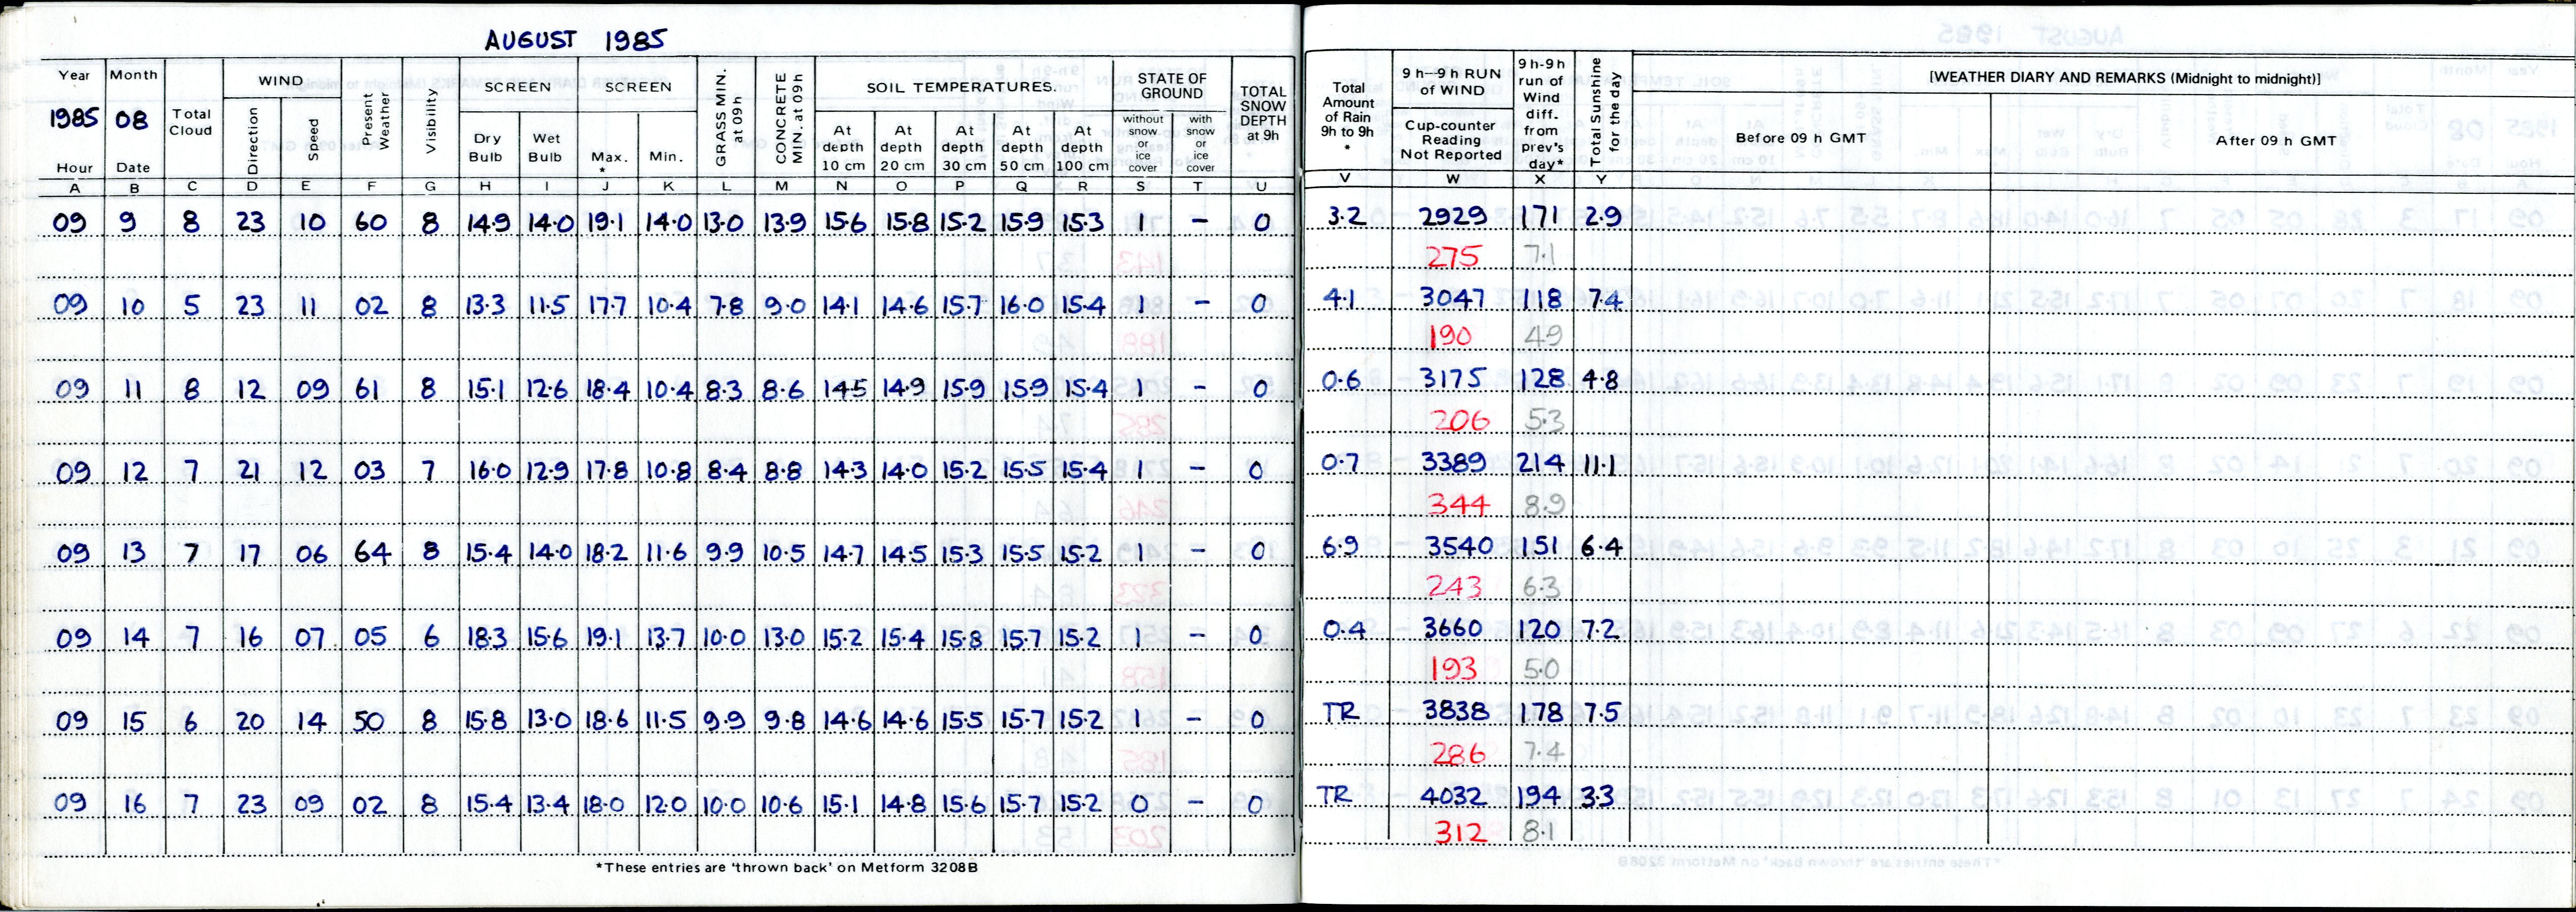 AUGUST 1985
Year Month Total Cloud WIND Present Weather Visibility SCREEN SCREEN GRASS MIN. at 09h CONCRETE MIN. at 09h SOIL TEMPERATURES. STATE OF GROUND TOTAL SNOW DEPTH at 9h Total Amount of Rain 9h to 9h * 9h—9h RUN of WIND 9h-9h run of Wind diff. from prev's day* Total Sunshine for the day [WEATHER DIARY AND REMARKS (Midnight to midnight)]
1985 08 Direction Speed Dry Bulb Wet Bulb Max. * Min. At depth 10 cm At depth 20 cm At depth 30 cm At depth 50 cm At depth 100 cm without snow or ice cover with snow or ice cover Cup-counter Reading Not Reported Before 09 h GMT After 09 h GMT
Hour Date
A B C D E F G H I J K L M N O P Q R S T U V W X Y
09 9 8 23 10 60 8 14.9 14.0 19.1 14.0 13.0 13.9 15.6 15.8 15.2 15.9 15.3 1 – 0 3.2 2929 171 2.9
275 7.1
09 10 5 23 11 02 8 13.3 11.5 17.7 10.4 7.8 9.0 14.1 14.6 15.7 16.0 15.4 1 – 0 4.1 3047 118 7.4
190 4.9
09 11 8 12 09 61 8 15.1 12.6 18.4 10.4 8.3 8.6 14.5 14.9 15.9 15.9 15.4 1 – 0 0.6 3175 128 4.8
206 5.3
09 12 7 21 12 03 7 16.0 12.9 17.8 10.8 8.4 8.8 14.3 14.0 15.2 15.5 15.4 1 – 0 0.7 3389 214 11.1
344 8.9
09 13 7 17 06 64 8 15.4 14.0 18.2 11.6 9.9 10.5 14.7 14.5 15.3 15.5 15.2 1 – 0 6.9 3540 151 6.4
243 6.3
09 14 7 16 07 05 6 18.3 15.6 19.1 13.7 10.0 13.0 15.2 15.4 15.8 15.7 15.2 1 – 0 0.4 3660 120 7.2
193 5.0
09 15 6 20 14 50 8 15.8 13.0 18.6 11.5 9.9 9.8 14.6 14.6 15.5 15.7 15.2 1 – 0 TR 3838 178 7.5
286 7.4
09 16 7 23 09 02 8 15.4 13.4 18.0 12.0 10.0 10.6 15.1 14.8 15.6 15.7 15.2 0 – 0 TR 4032 194 3.3
312 8.1
*These entries are 'thrown back' on Metform 3208B